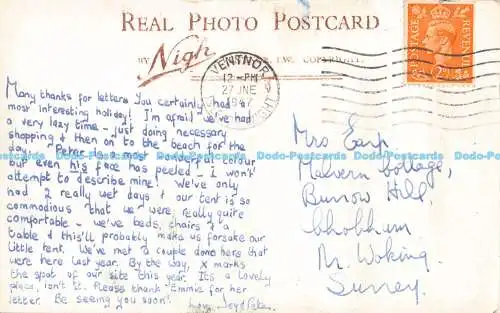 REAL PHOTO POSTCARD
BY Nigh I.W. COPYRIGHT.
VENTNOR
12 - PM
27 JNE
1947
POSTAGE REVENUE
2D
Many thanks for letters you certainly had a
most interesting holiday! I'm afraid we've had
a very lazy time - just doing necessary
shopping & then on to the beach for the
day. Peter is a most wonderful colour
but even his face has peeled - I won't
attempt to describe mine! We've only
had 2 really wet days & our tent is so
commodious that we were really quite
comfortable - we've beds, chairs & a
table & this'll probably make us forsake our
little tent. We've met a couple down here that
were here last year. By the way, X marks
the spot of our site this year. It's a lovely
place, isn't it. Please thank Emmie for her
letter. Be seeing you soon!
Love, Joy & Peter
Mrs Earp
Malvern Cottage,
Burrow Hill,
Chobham
Nr. Woking.
Surrey.
Dodo-Postcards Dodo-Postcards Dodo-Postcards Dodo-Postcards